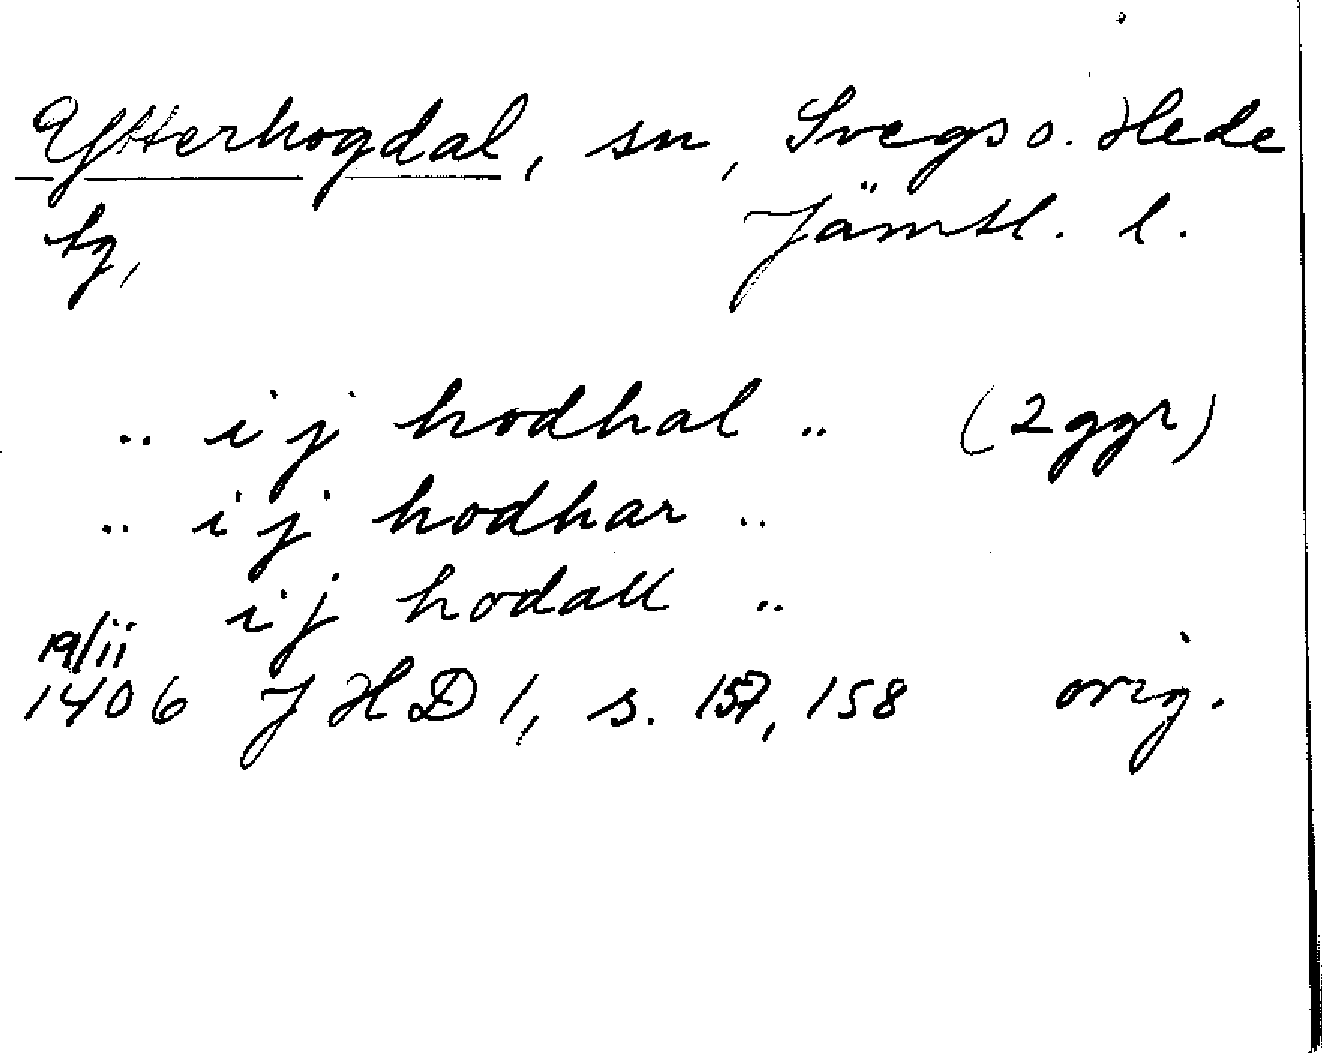 Ytterhogdal, sn, Svegs o. Hede
tg, Jämtl. l.
.. i j hodhal .. (2 ggr)
.. i j hodhar ..
i j hodall ..
19/11
1406 JHD 1, s. 157, 158 orig.